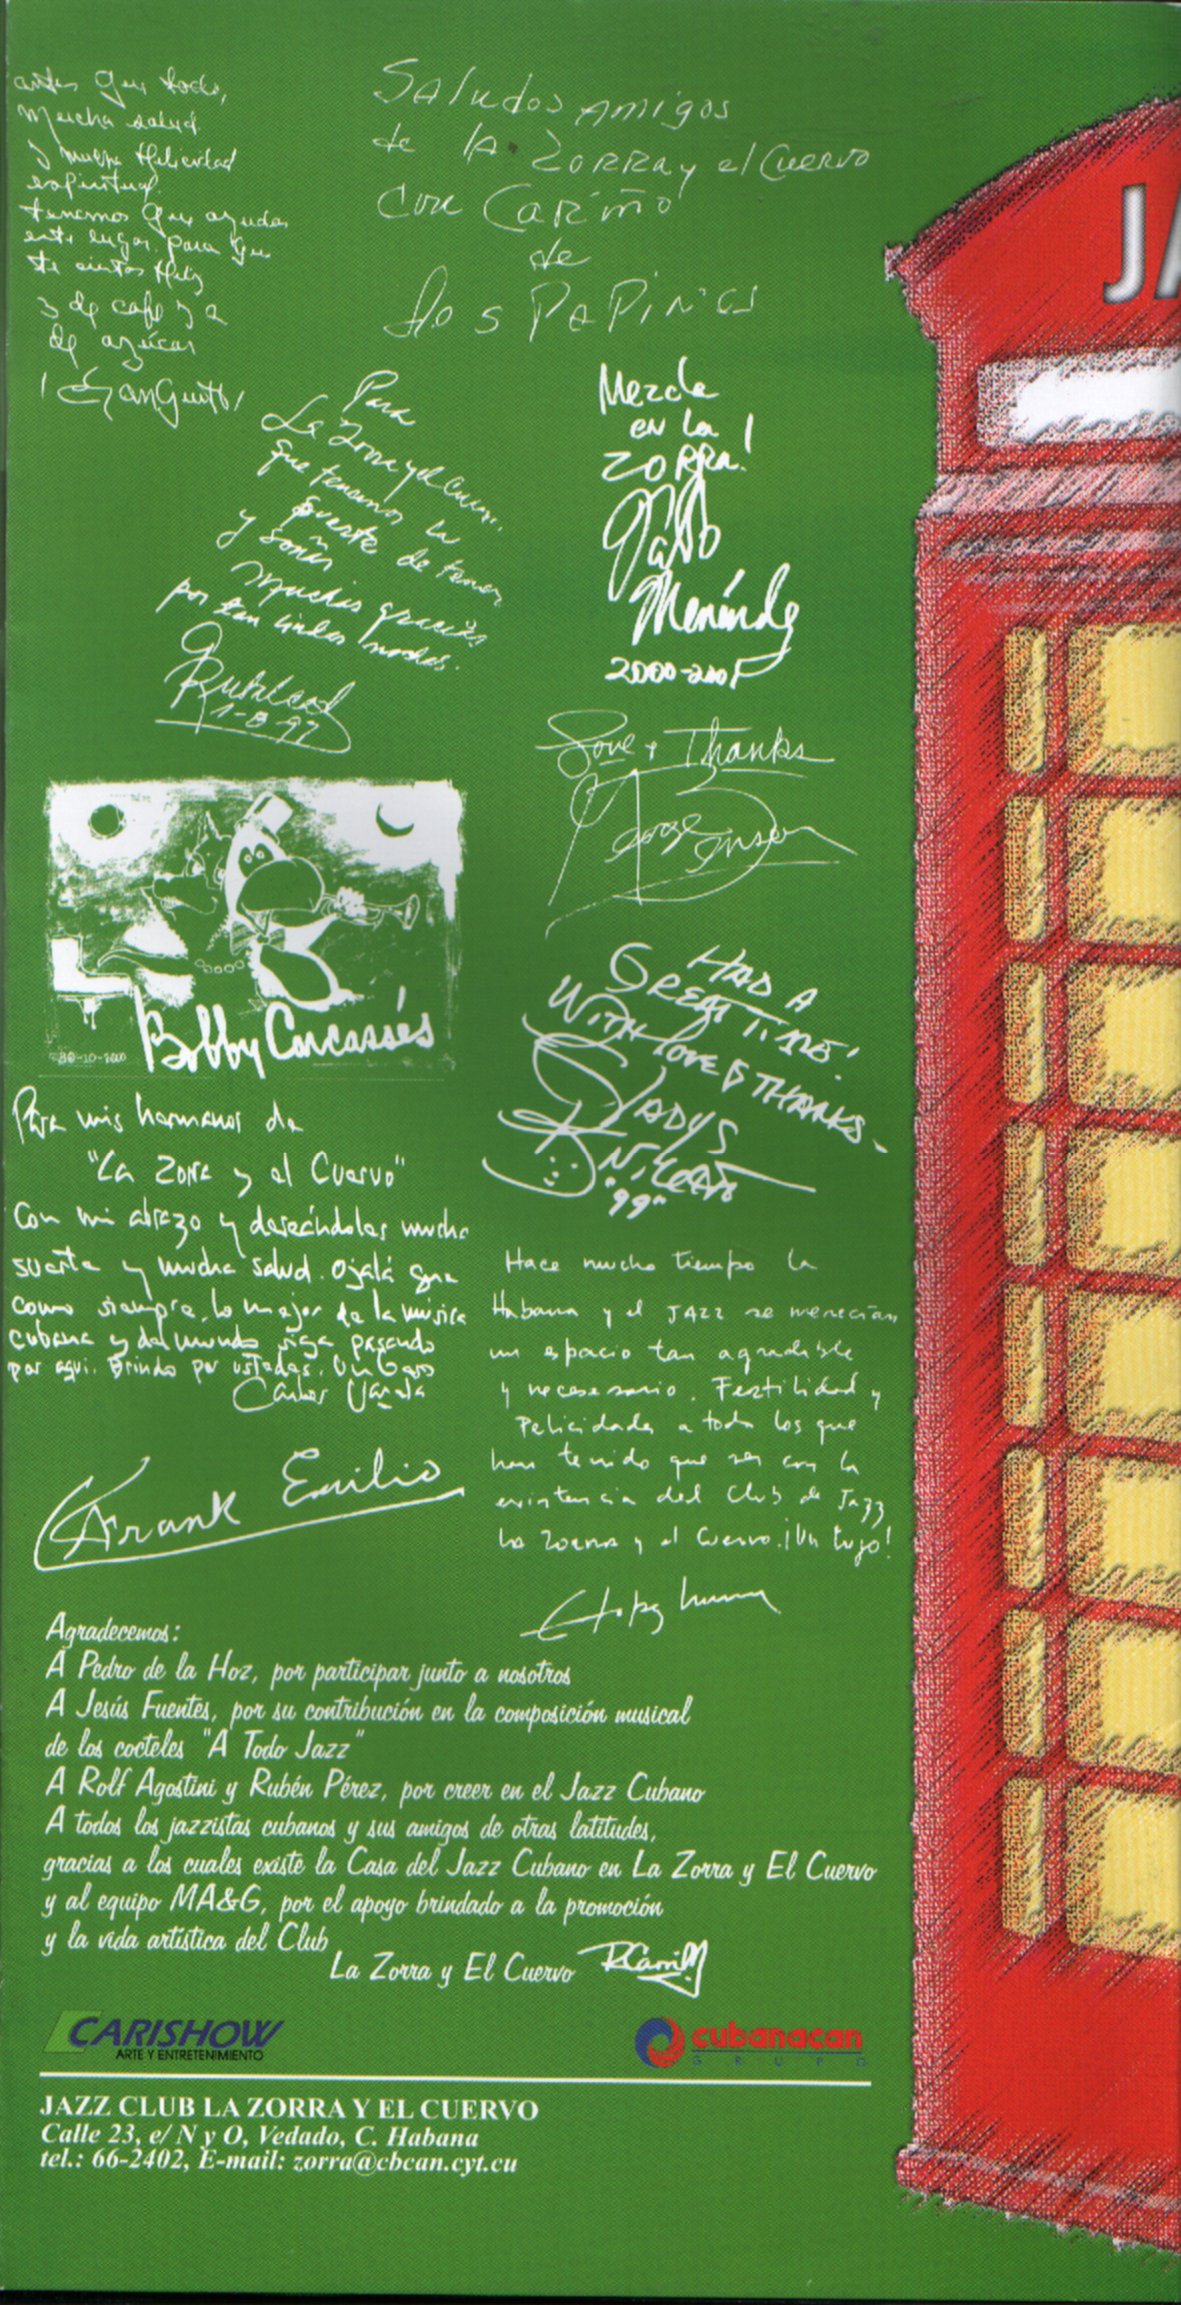 antes que todo,
mucha salud
y mucha felicidad
espiritual.
tenemos que ayudar
este lugar para que
te sientas feliz
y de café y a
de azúcar
¡Changuito!
Saludos Amigos
de la Zorra y el Cuervo
con Cariño
de
Los Papines
Para
La Zorra y el Cuervo.
que tenemos la
suerte de tener
y soñar
muchas gracias
por tan lindas noches.
1-8-97
Mezcla
en la
ZORRA!
Pablo
Menéndez
2000-2001
Love + Thanks
George Benson
HAD A
GREAT TIME!
WITH LOVE & THANKS-
GLADYS
"99"
Bobby Carcassés
30-10-2000
Para mis hermanos de
"La Zorra y el Cuervo"
Con mi abrazo y deseándoles mucha
suerte y mucha salud. Ojalá que
como siempre, lo mejor de la música
cubana y del mundo siga pasando
por aquí. Brindo por ustedes. Un beso
Carlos Varela
Frank Emilio
Hace mucho tiempo la
Habana y el JAZZ se merecían
un espacio tan agradable
y necesario. Fertilidad y
Felicidades a todos los que
han tenido que ver con la
existencia del Club de Jazz
La Zorra y el Cuervo. ¡Un lujo!
Agradecemos:
A Pedro de la Hoz, por participar junto a nosotros
A Jesús Fuentes, por su contribución en la composición musical
de los cocteles "A Todo Jazz"
A Rolf Agostini y Rubén Pérez, por creer en el Jazz Cubano
A todos los jazzistas cubanos y sus amigos de otras latitudes,
gracias a los cuales existe la Casa del Jazz Cubano en La Zorra y El Cuervo
y al equipo MA&G, por el apoyo brindado a la promoción
y la vida artística del Club
La Zorra y El Cuervo
CARISHOW
ARTE Y ENTRETENIMIENTO
cubanacan
GRUPO
JAZZ CLUB LA ZORRA Y EL CUERVO
Calle 23, e/ N y O, Vedado, C. Habana
tel.: 66-2402, E-mail: zorra@cbcan.cyt.cu
JA